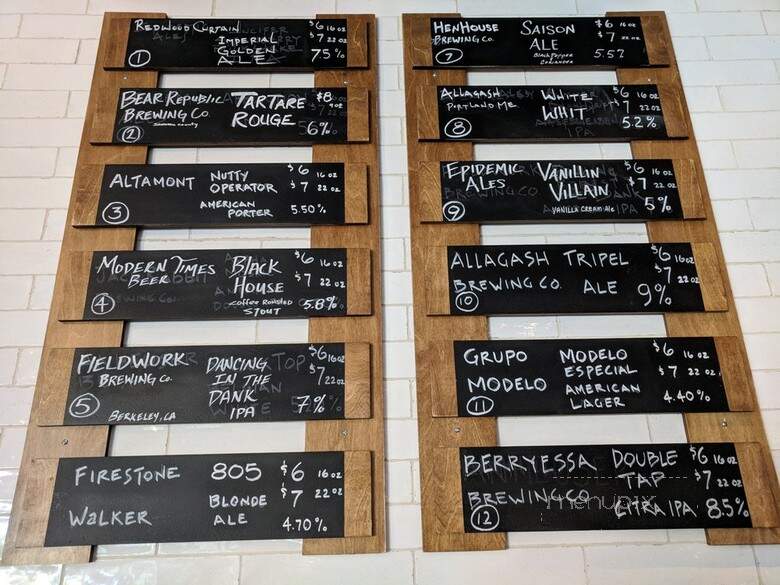 REDWOOD CURTAIN $6 16 oz
IMPERIAL $7 22 oz
GOLDEN
ALE 7.5%
1
BEAR REPUBLIC TARTARE $8
BREWING CO. ROUGE 9oz
SONOMA COUNTY 5.6%
2
ALTAMONT NUTTY $6 16 oz
OPERATOR $7 22 oz
AMERICAN
PORTER 5.50%
3
MODERN TIMES BLACK $6 16 oz
BEER HOUSE $7 22 oz
COFFEE ROASTED
STOUT 5.8%
4
FIELDWORK DANCING $6 16 oz
BREWING CO. IN THE $7 22 oz
DANK
IPA 7%
5 BERKELEY, CA
FIRESTONE 805 $6 16 oz
BLONDE $7 22 oz
WALKER ALE 4.70%
HENHOUSE SAISON $6 16 oz
BREWING CO. ALE $7 22 oz
BLACK PEPPER
CORIANDER 5.5%
7
ALLAGASH WHITE $6 16 oz
PORTLAND ME. WHIT $7 22 oz
8 5.2%
EPIDEMIC VANILLIN $6 16 oz
ALES VILLAIN $7 22 oz
9 VANILLA CREAM ALE 5%
ALLAGASH TRIPEL $6 16 oz
BREWING CO. ALE $7 22 oz
10 9%
GRUPO MODELO $6 16 oz
ESPECIAL $7 22 oz
MODELO AMERICAN
11 LAGER 4.40%
BERRYESSA DOUBLE $6 16 oz
TAP $7 22 oz
BREWING CO CITRA IPA 8.5%
12
menupix